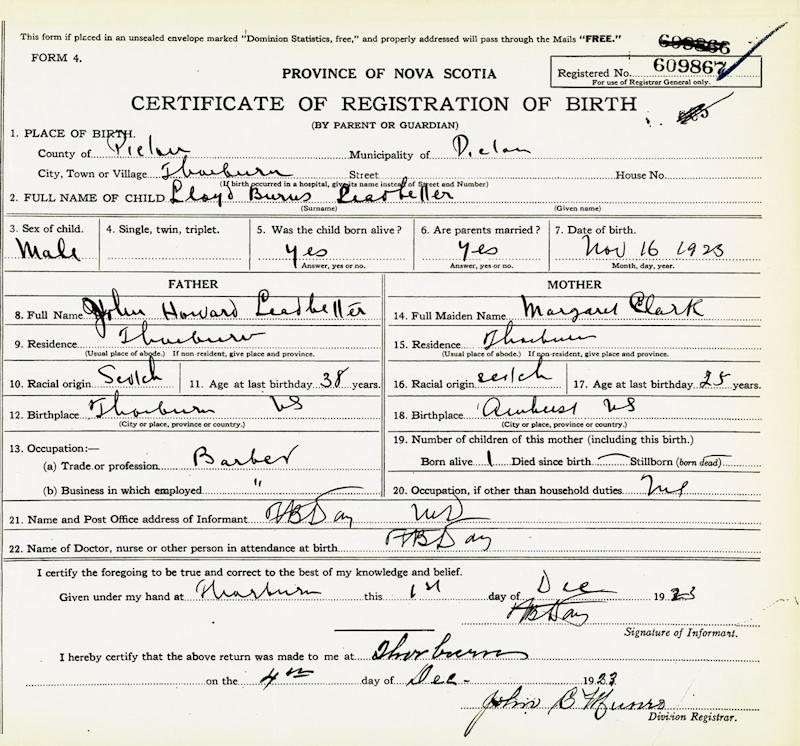 This form if placed in an unsealed envelope marked "Dominion Statistics, free," and properly addressed will pass through the Mails "FREE."
FORM 4.
608866
PROVINCE OF NOVA SCOTIA
Registered No. 609867
For use of Registrar General only.
CERTIFICATE OF REGISTRATION OF BIRTH
(BY PARENT OR GUARDIAN)
1. PLACE OF BIRTH.
County of Pictou Municipality of Pictou
City, Town or Village Thorburn Street House No.
(If birth occurred in a hospital, give its name instead of Street and Number)
2. FULL NAME OF CHILD Lloyd Burns Leadbetter
(Surname) (Given name)
3. Sex of child. 4. Single, twin, triplet. 5. Was the child born alive? 6. Are parents married? 7. Date of birth.
Male Yes Yes Nov 16 1923
Answer, yes or no. Answer, yes or no. Month, day, year.
FATHER MOTHER
8. Full Name John Howard Leadbetter 14. Full Maiden Name Margaret Clark
9. Residence Thorburn 15. Residence Thorburn
(Usual place of abode.) If non-resident, give place and province. (Usual place of abode.) If non-resident, give place and province.
10. Racial origin Scotch 11. Age at last birthday 38 years. 16. Racial origin scotch 17. Age at last birthday 25 years.
12. Birthplace Thorburn NS 18. Birthplace Amherst NS
(City or place, province or country.) (City or place, province or country.)
13. Occupation:— 19. Number of children of this mother (including this birth.)
(a) Trade or profession Barber Born alive 1 Died since birth — Stillborn (born dead) —
(b) Business in which employed " 20. Occupation, if other than household duties
21. Name and Post Office address of Informant HB Day MD
22. Name of Doctor, nurse or other person in attendance at birth HB Day
I certify the foregoing to be true and correct to the best of my knowledge and belief.
Given under my hand at Thorburn this 1st day of Dec 1923
HB Day
Signature of Informant.
I hereby certify that the above return was made to me at Thorburn
on the 4th day of Dec- 1923
John B Munro
Division Registrar.